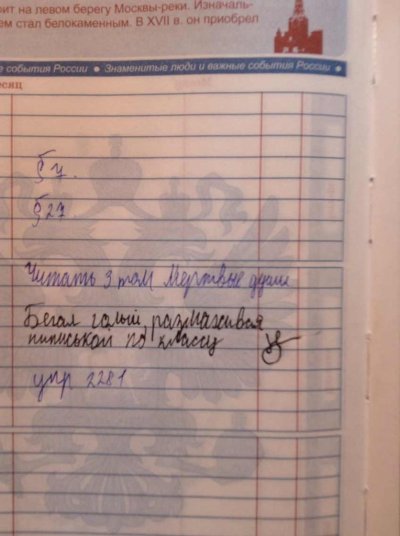 оит на левом берегу Москвы-реки. Изначаль-
ем стал белокаменным. В XVII в. он приобрел
е события России • Знаменитые люди и важные события России •
есяц
§ 7.
§ 27
Читать 3 том Мертвые души
Бегал голый, размахивая
пиписькой по классу
упр 2281